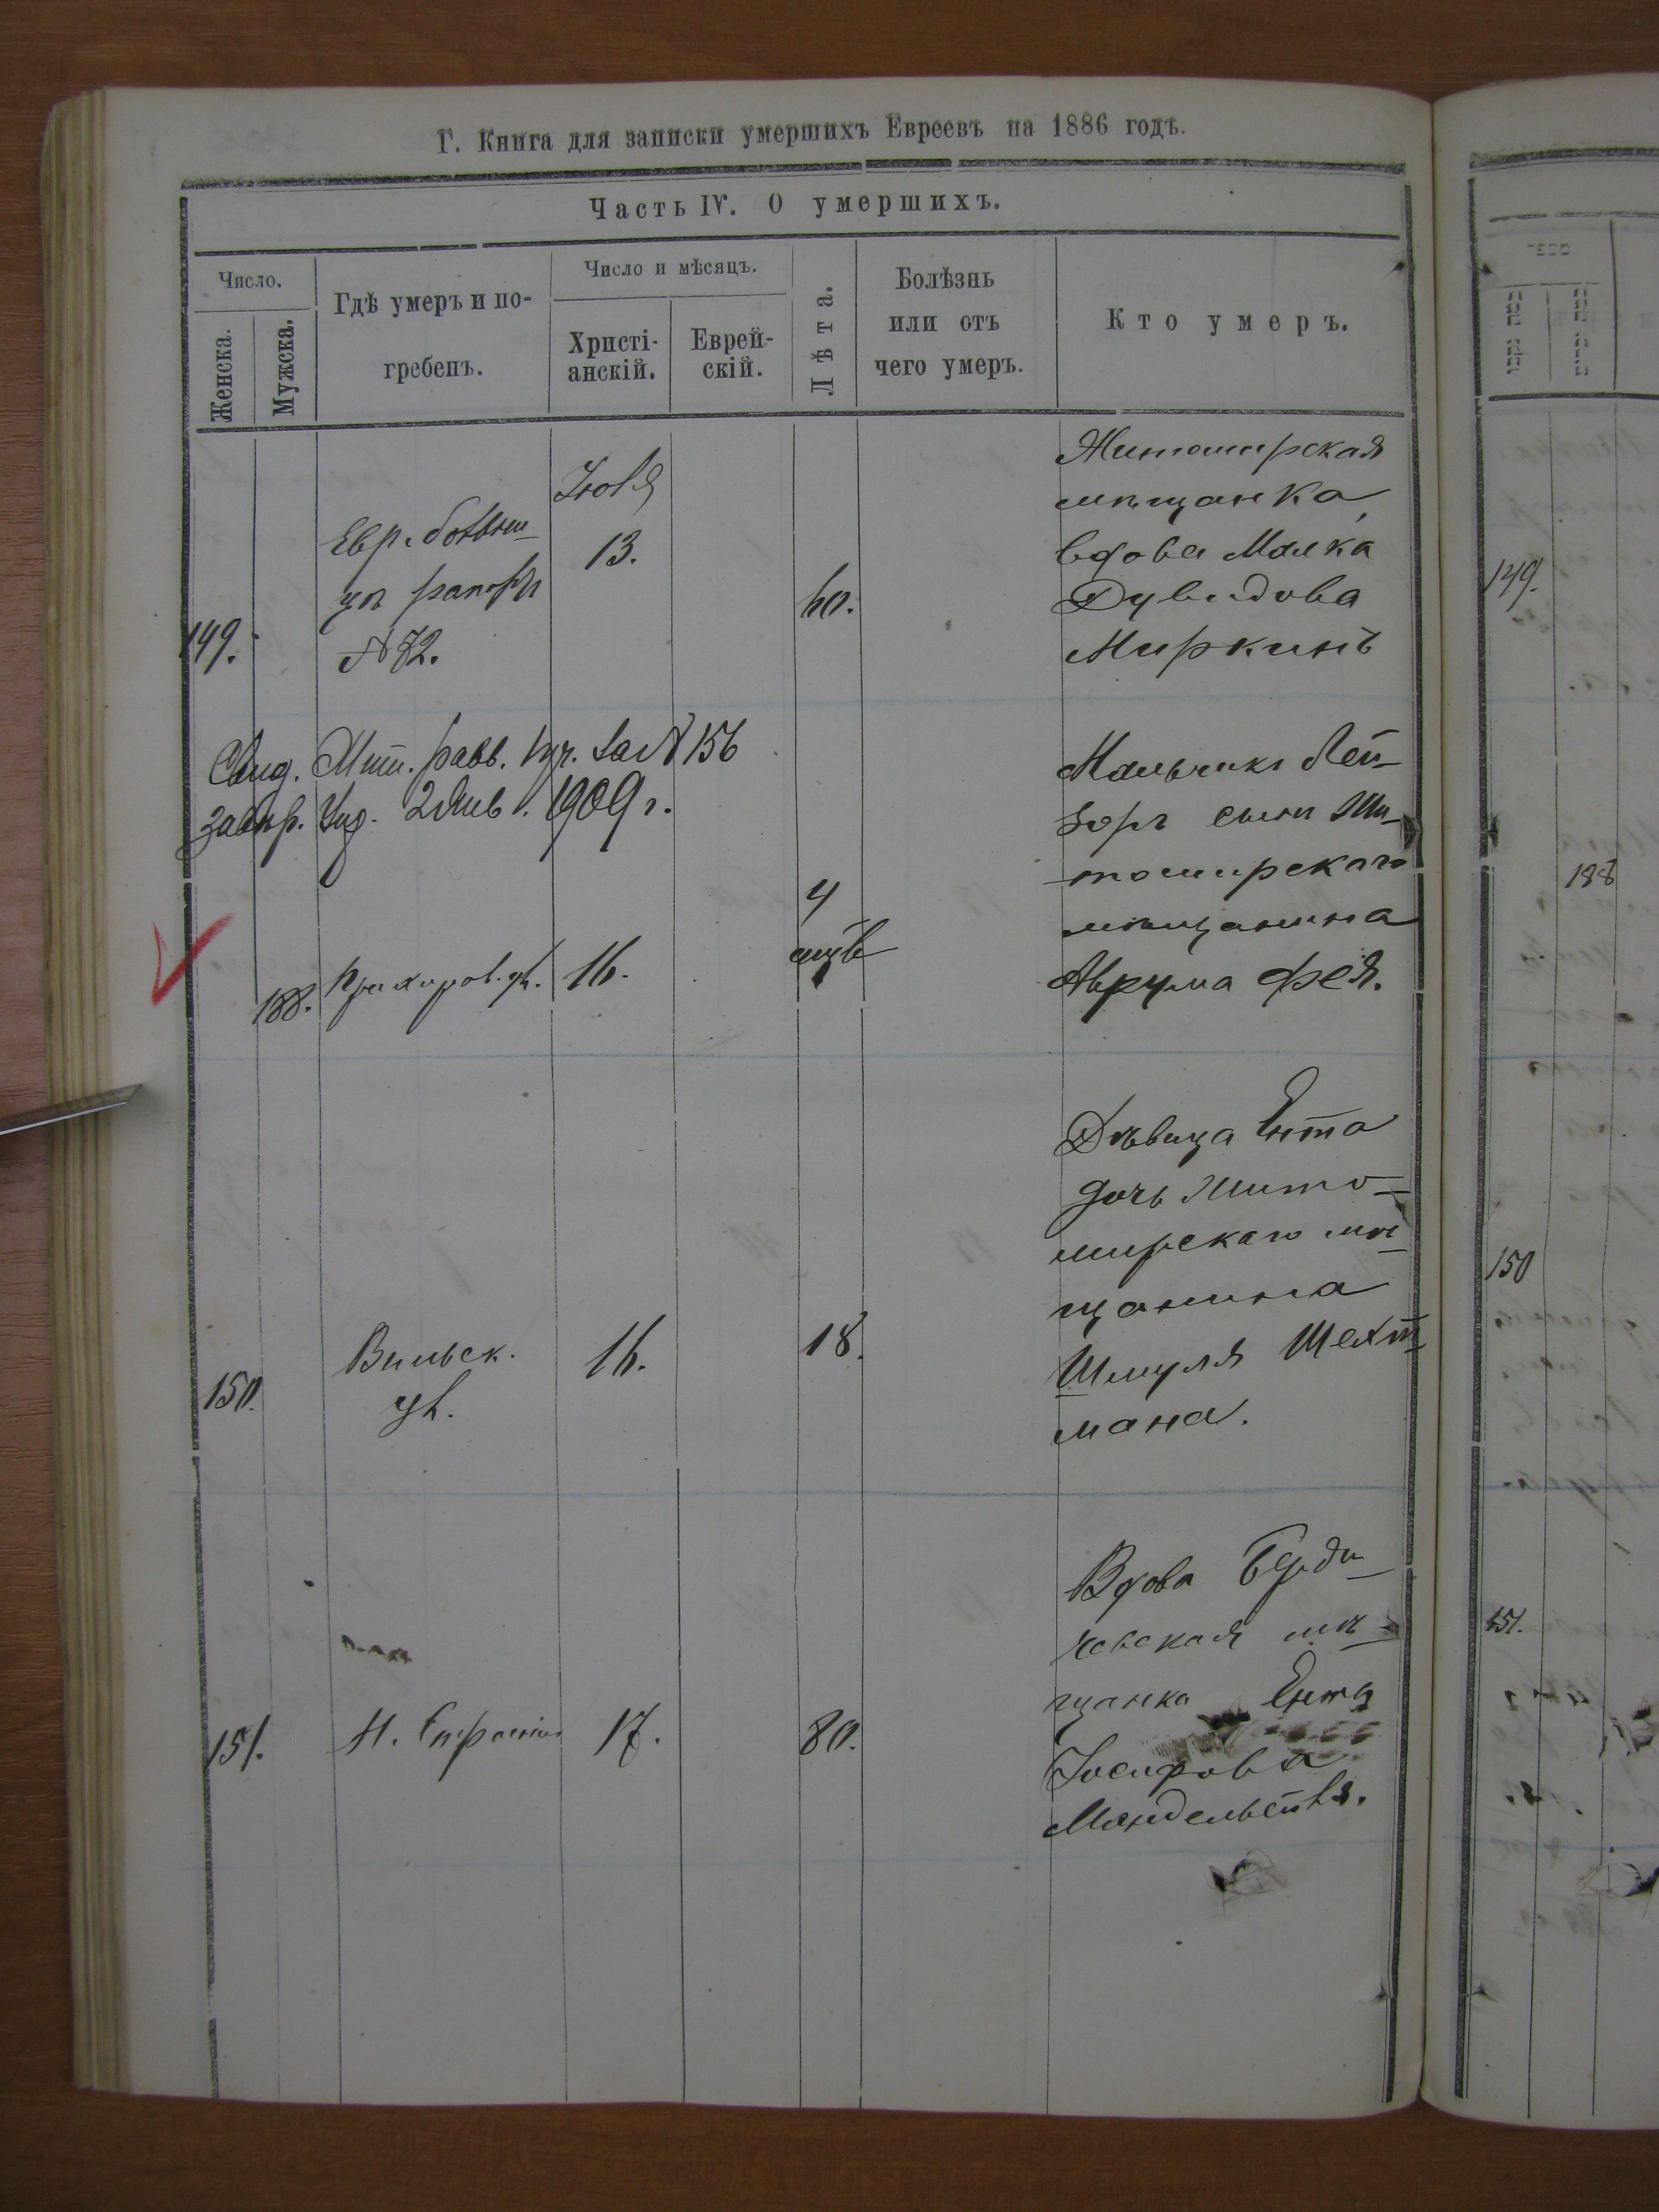 Г. Книга для записки умершихъ Евреевъ на 1886 годъ.
Часть IV. О умершихъ.
Число.
Женска.
Мужска.
Гдѣ умеръ и по-
гребенъ.
Число и мѣсяцъ.
Христі-
анскій.
Еврей-
скій.
Лѣта.
Болѣзнь
или отъ
чего умеръ.
Кто умеръ.
149.
Евр. больни-
цы рапортъ
№ 72.
Іюля
13.
60.
Житомирская
мѣщанка,
вдова Малка
Дувидова
Миркинъ
Свид. Жит. равв. за № 156
2 Янв. 1909 г.
188.
16.
4
мѣс
Мальчикъ Лей-
зоръ сынъ Жи-
томирскаго
мѣщанина
Аврума Фея.
150.
Вильск.
ул.
16.
18.
Дѣвица Ента
дочь Жито-
мирскаго мѣ-
щанина
Шмуля Шехт-
мана.
151.
17.
80.
Вдова Берди-
чевская мѣ-
щанка Ента
Іосифова
149.
188
150
151.